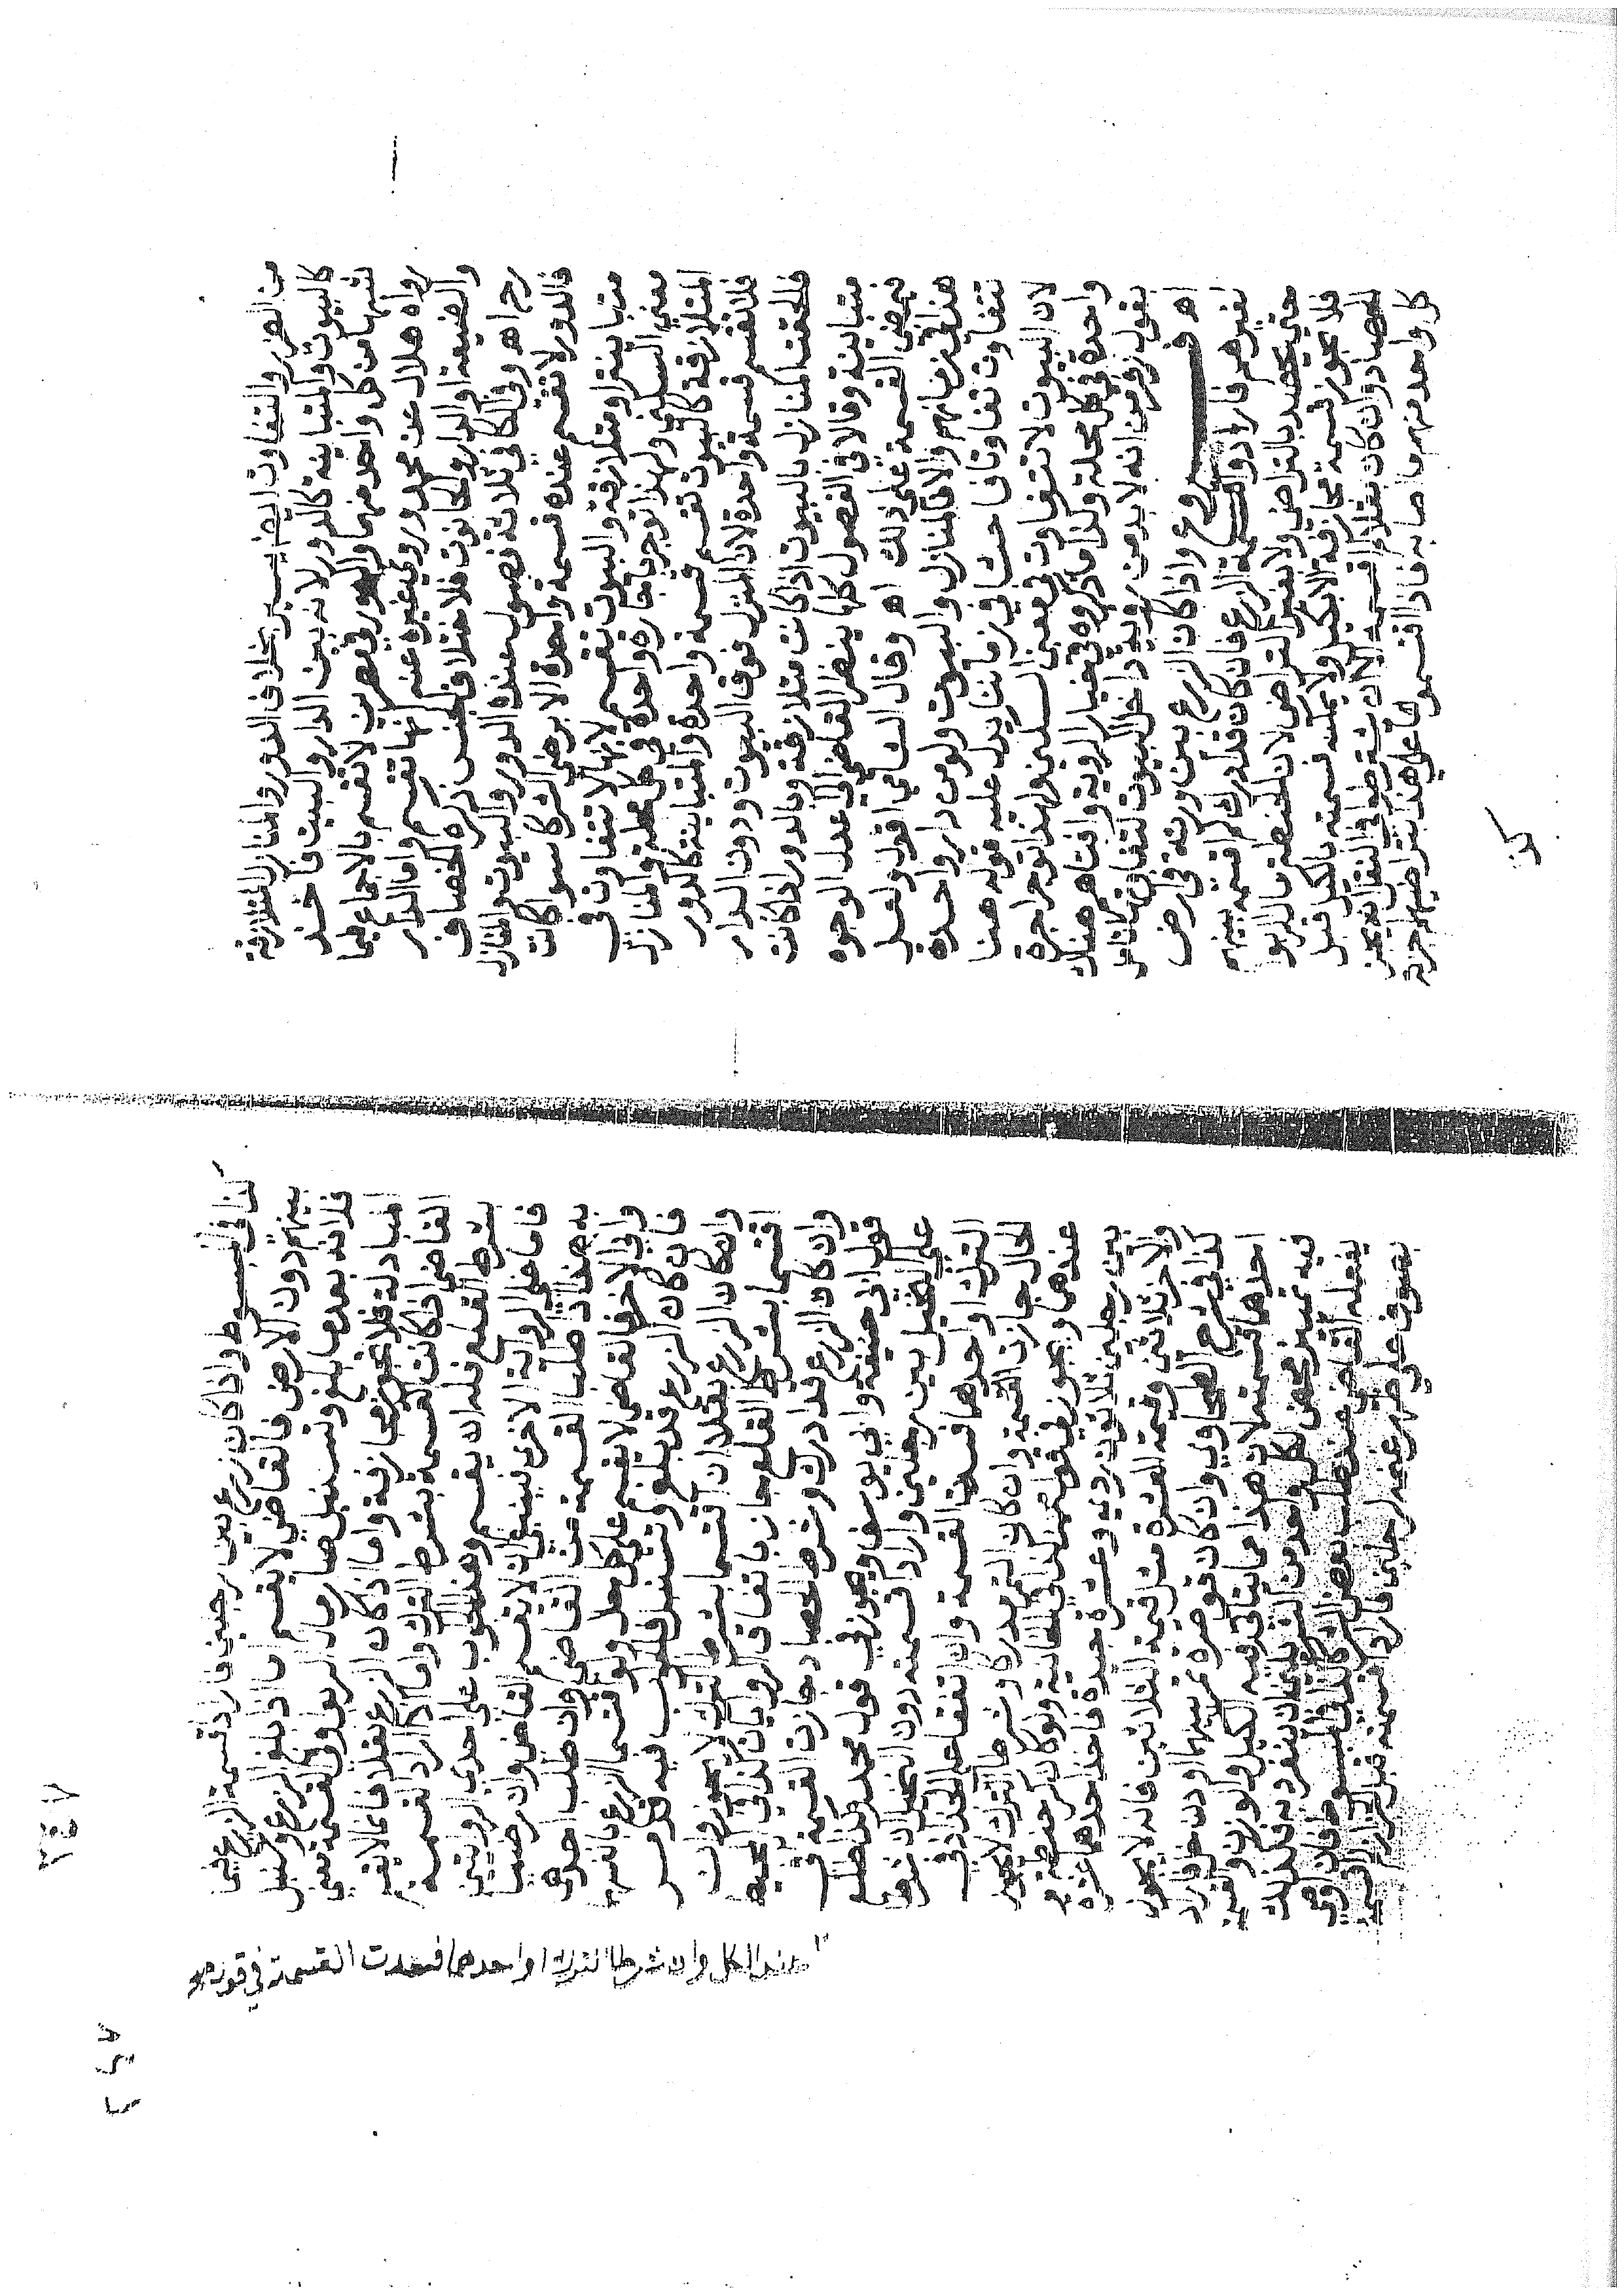 من الضرر والتفاوت اليسير بخلاف الدور والمنازل المتلازقة
كالبيوت والمتباينة كالدور لانه بين الدار والبيت فاخذ
شبها من كل واحد منهما والدور في مصرين لا تقسم بالاجماع فيما
رواه هلال عن محمد وروي غيره عنه انها تقسم واما الدار
والضيعة او الدار والحانوت فلاختلاف الجنس ذكره الخصاف
رح اه وفي الكافي ثلاثة فصول عنده الدور والبيوت والمنازل
فالدور لا تقسم عنده قسمة واحدة الا برضى الشركا سواكانت
متباينة او متلازقة والبيوت تقسم لانها لا تتفاوت في
معني السكني ولهذا توجر باجرة واحدة في كل محلة والمنازل
المتلازقة كالبيوت تقسم قسمة واحدة والمتباينة كالدور
فلا تقسم قسمة واحدة لان المنزل فوق البيوت ودون الدار
فالحقت المنازل بالبيوت اذا كانت متلازقة وبالدور اذا كانت
متباينة وقالا في الفصول كلها ينظر القاضي الى اعدل الوجوه
فيمضى القسمة على ذلك اه وقال الشامي اقول ولعل
هذا في زمانهم والا فالمنازل والبيوت ولو من دار واحدة
تتفاوت تفاوتا فاحشا في زماننا يدل عليه قوله هنا
لان البيوت لا تتفاوت في معنى السكنى ولهذا توجر اجرة
واحدة في كل محلة وكذا ما ذكروه في خيار الروية وافتاهم هناك
بقول زفر من انه لا بد من روية داخل البيوت لتفاوتها
اه فروع واذا كان الزرع بين ورثة في ارض
لغيرهم فارادوا قسمة الزرع فان كان قد ادرك لم اقسمه بينهم
حتي يحصد بالتراضي ولا بغير التراضي لان الحنطة مال الربو
فلا يجوز قسمته مجازفة الا بكيل ولا يمكن قسمته بالكيل قبل
الحصاد وان كان بقلا لم اقسمه الا ان يشترطوا في البقل ان يجز
كل واحد منهم ما اصابه فاذا اقتسموا على هذا بتراضيهم اجزته
كذا
كذا في المبسوط واذا كان زرع بين رجلين فارادا قسمة الزرع فيما
بينهم دون الارض فالقاضي لا يقسم اما اذا بلغ الزرع وتسنبل
فلانه بعد ما بلغ وتسنبل صار مال الربا وفي القسمة معني
المبادلة فلا يجوز مجازفة واما اذ كان الزرع بقلا فانما لا يقسم
القاضي اذا كانت القسمة بشرط الترك واما اذا ارادا القسمة
بشرط القلع فله ان يقسم وهذا الجواب على احدي الروايتين
فاما على الرواية الاخرى فينبغي ان لا يقسم القاضي وان رضيا
به هذا اذا طلبا القسمة من القاضي وان طلب احدهما
وابي الاخر فالقاضي لا يقسم على كل حال ولو اقتسما الزرع بانفسهم
فان كان الزرع قد بلغ وتسنبل فالجواب فيه قد مر
وان كان الزرع بقلا ان اقتسما بشرط الترك لا يجوز وان
اقتسما بشرط القلع جاز باتفاق الروايات كذا في المحيط
وان كان الزرع قد ادرك وشرط الحصاد جازت القسمة
قول ابي حنيفة وابي يوسف ويجوز في قول محمد
على النخيل بين رجلين واراد قسمته دون النخيل ان شرطا
الترك او احدهما فسدت القسمة وان اتفقا على الجذاذ في
الحال جازت القسمة وان كان الثمر مدركا وشرطا الترك لا يجوز
عندهما ويجوز في قول محمد كذا في الخانية ولو كان كر حنطة
بين رجلين ثلاثون ردي وعشرة جيدة فاخذ احدهما عشرة
والاخر ثلاثين وقيمة العشرة مثل قيمة الثلاثين فانه لا يجوز
كذا في شرح الطحاوي وان كان قوصرة تمر بينهما او دن خل فاراد
احدهما قسمته لان هذا مما يتاتى فيه الكيل والوزن والقسمة
فيه تمييز محض لكل واحد من الشريكين ان ينفرد به فكذلك
يفعله القاضي عند طلب بعض الشركا كذا في المبسوط
بصوف على ظهر غنم لرجلين فاراد قسمته قبل الجز لم اقسمه
عند الكل وان شرطا الترك او احدهما فسدت القسمة في قولهم
٢٥٧